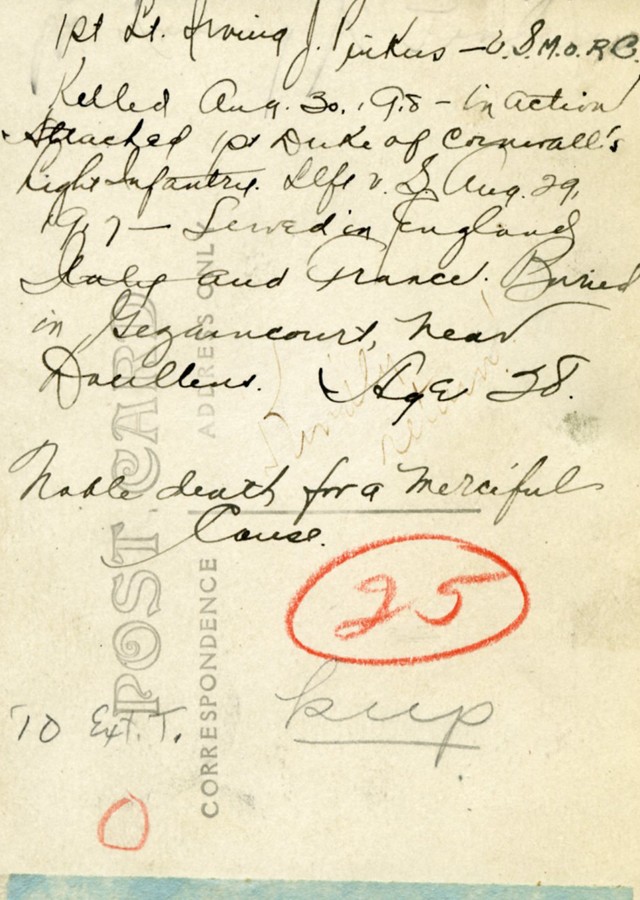 1st Lt. Irving J. Pinkus – U.S.M.O.R.C.
Killed Aug. 30, 1918 – in action
Attached 1st Duke of Cornwall's
Light Infantry. Left U.S. Aug. 29,
1917 – Served in England
Italy and France. Buried
in Gezaincourt, near
Doullens. Age 28.
Kindly
return
Noble death for a merciful
Cause.
25
kup
TO Ext. T.
POST CARD
CORRESPONDENCE
ADDRESS ONLY